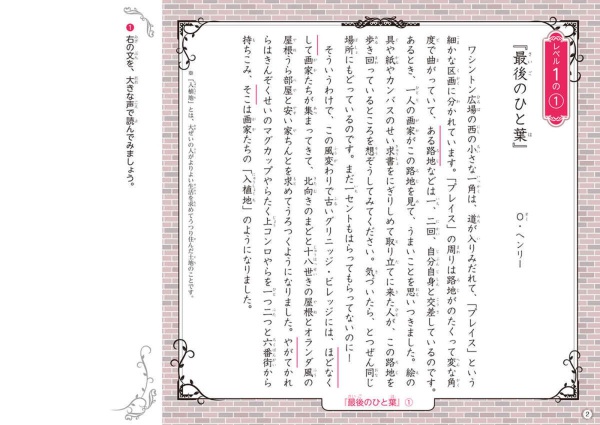 レベル1の①
『最後のひと葉』
O・ヘンリー
ワシントン広場の西の小さな一角は、道が入りみだれて、「プレイス」という
細かな区画に分かれています。「プレイス」の周りは路地がのたくって変な角
度で曲がっていて、ある路地などは一、二回、自分自身と交差しているのです。
あるとき、一人の画家がこの路地を見て、うまいことを思いつきました。絵の
具や紙やカンバスのせい求書をにぎりしめて取り立てに来た人が、この路地を
歩き回っているところを想ぞうしてみてください。気づいたら、とつぜん同じ
場所にもどっているのです。まだ一セントもはらってもらってないのに―
そういうわけで、この風変わりで古いグリニッジ・ビレッジには、ほどなく
して画家たちが集まってきて、北向きのまどと十八世きの屋根とオランダ風の
屋根うら部屋と安い家ちんとを求めてうろつくようになりました。やがてかれ
らはきんぞくせいのマグカップやらたく上コンロやらを一つ二つと六番街から
待ちこみ、そこは画家たちの「入植地」のようになりました。
※「入植地」とは、大ぜいの人がよりよい生活を求めてうつり住んだ土地のことです。
❶ 右の文を、大きな声で読んでみましょう。
『最後のひと葉』①
7